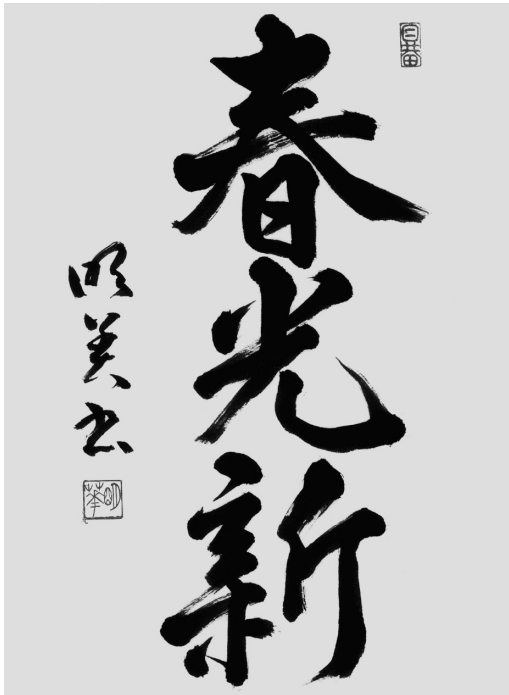 春光新
明美書